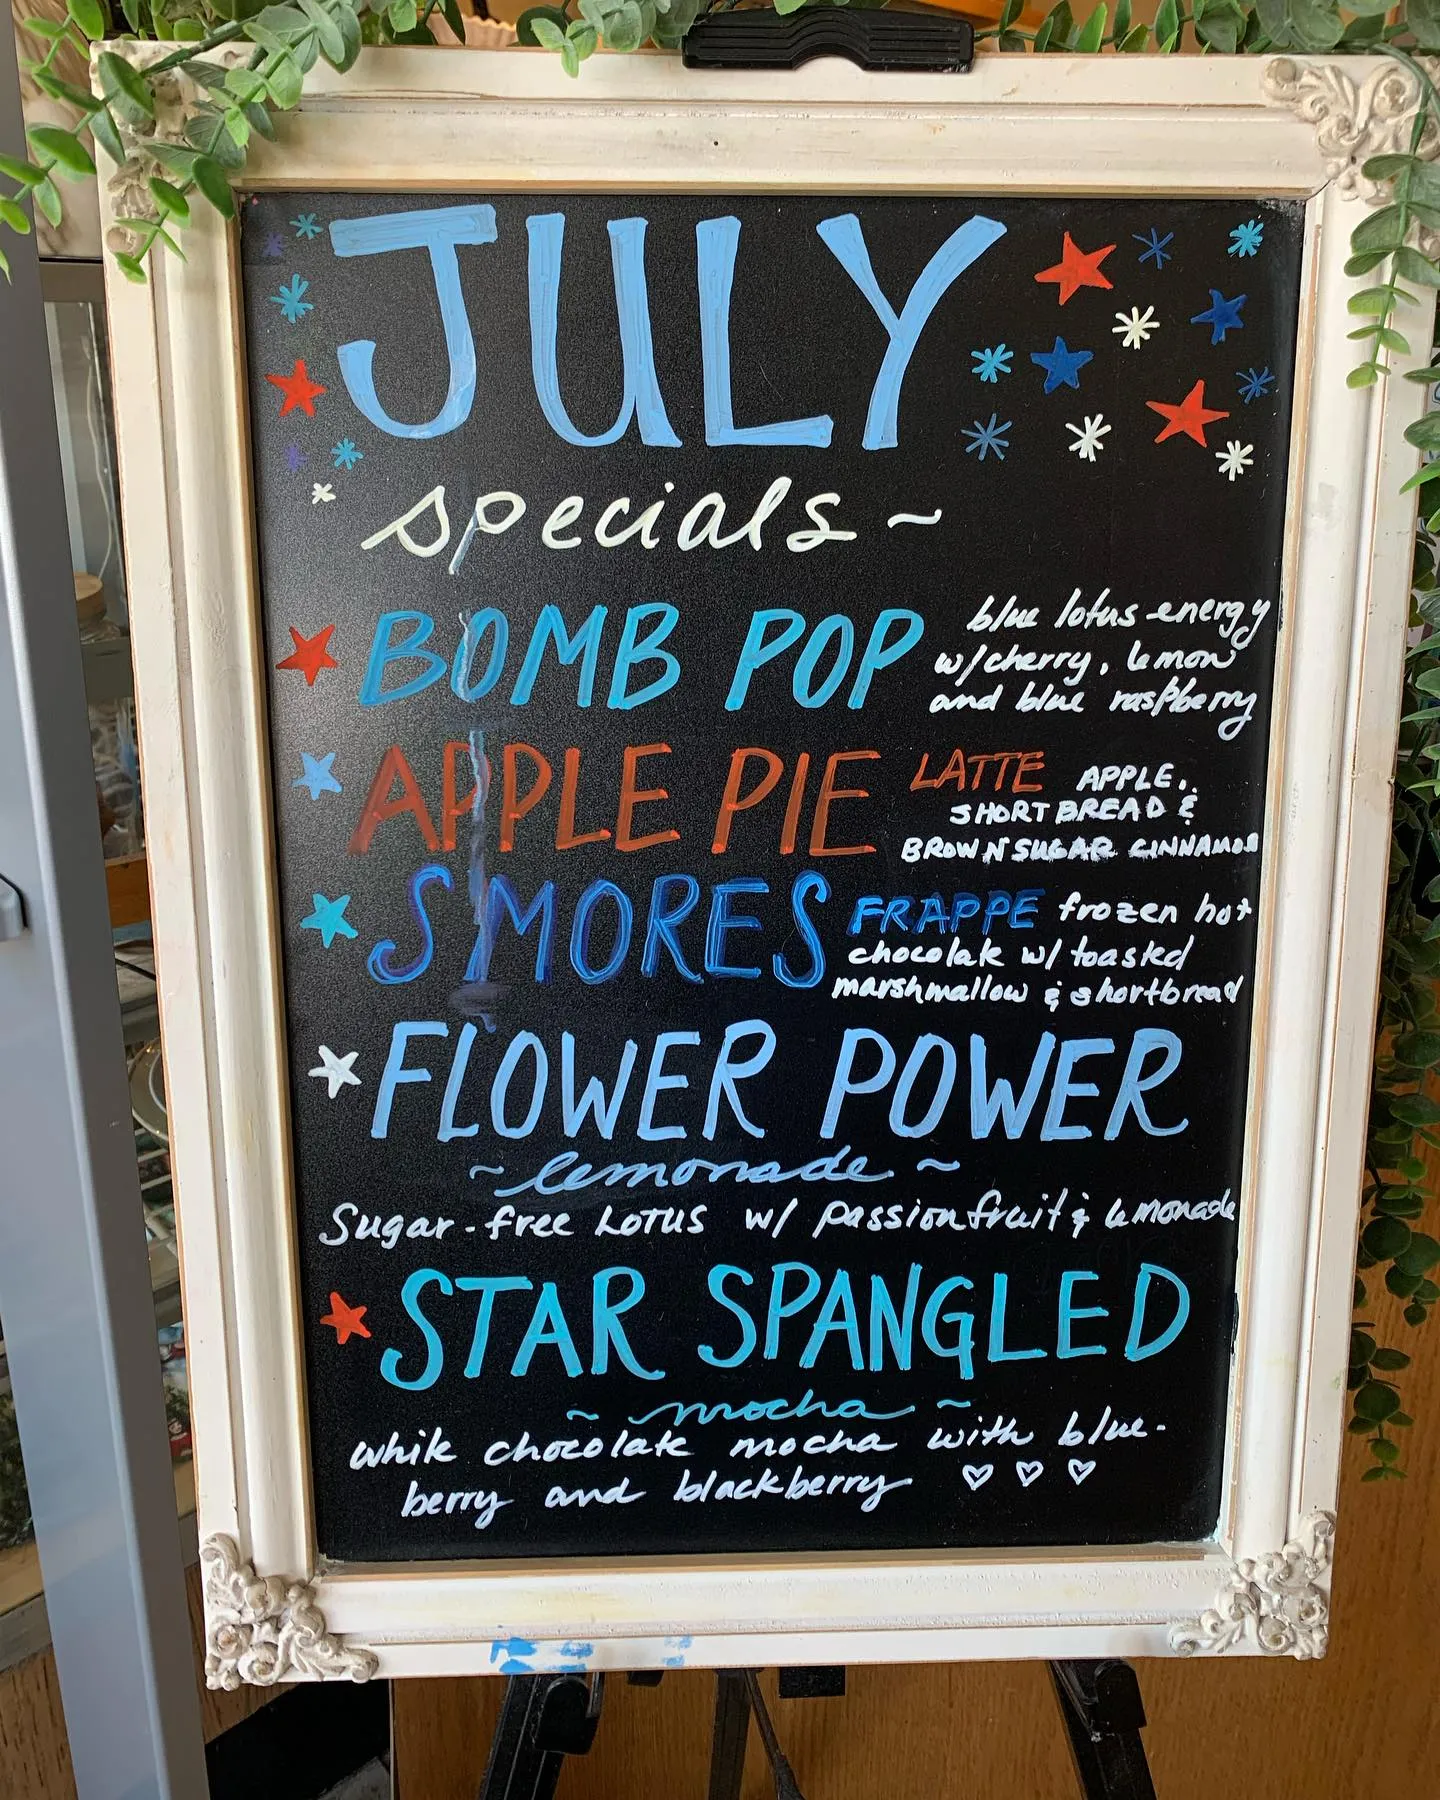 JULY
specials~
BOMB POP
blue lotus energy
w/cherry, lemon
and blue raspberry
APPLE PIE LATTE APPLE,
SHORTBREAD &
BROWN SUGAR CINNAMON
S'MORES FRAPPE frozen hot
chocolate w/ toasted
marshmallow & shortbread
FLOWER POWER
~lemonade~
Sugar-free LOTUS w/ passionfruit & lemonade
STAR SPANGLED
~ mocha ~
white chocolate mocha with blue-
berry and blackberry ♡ ♡ ♡